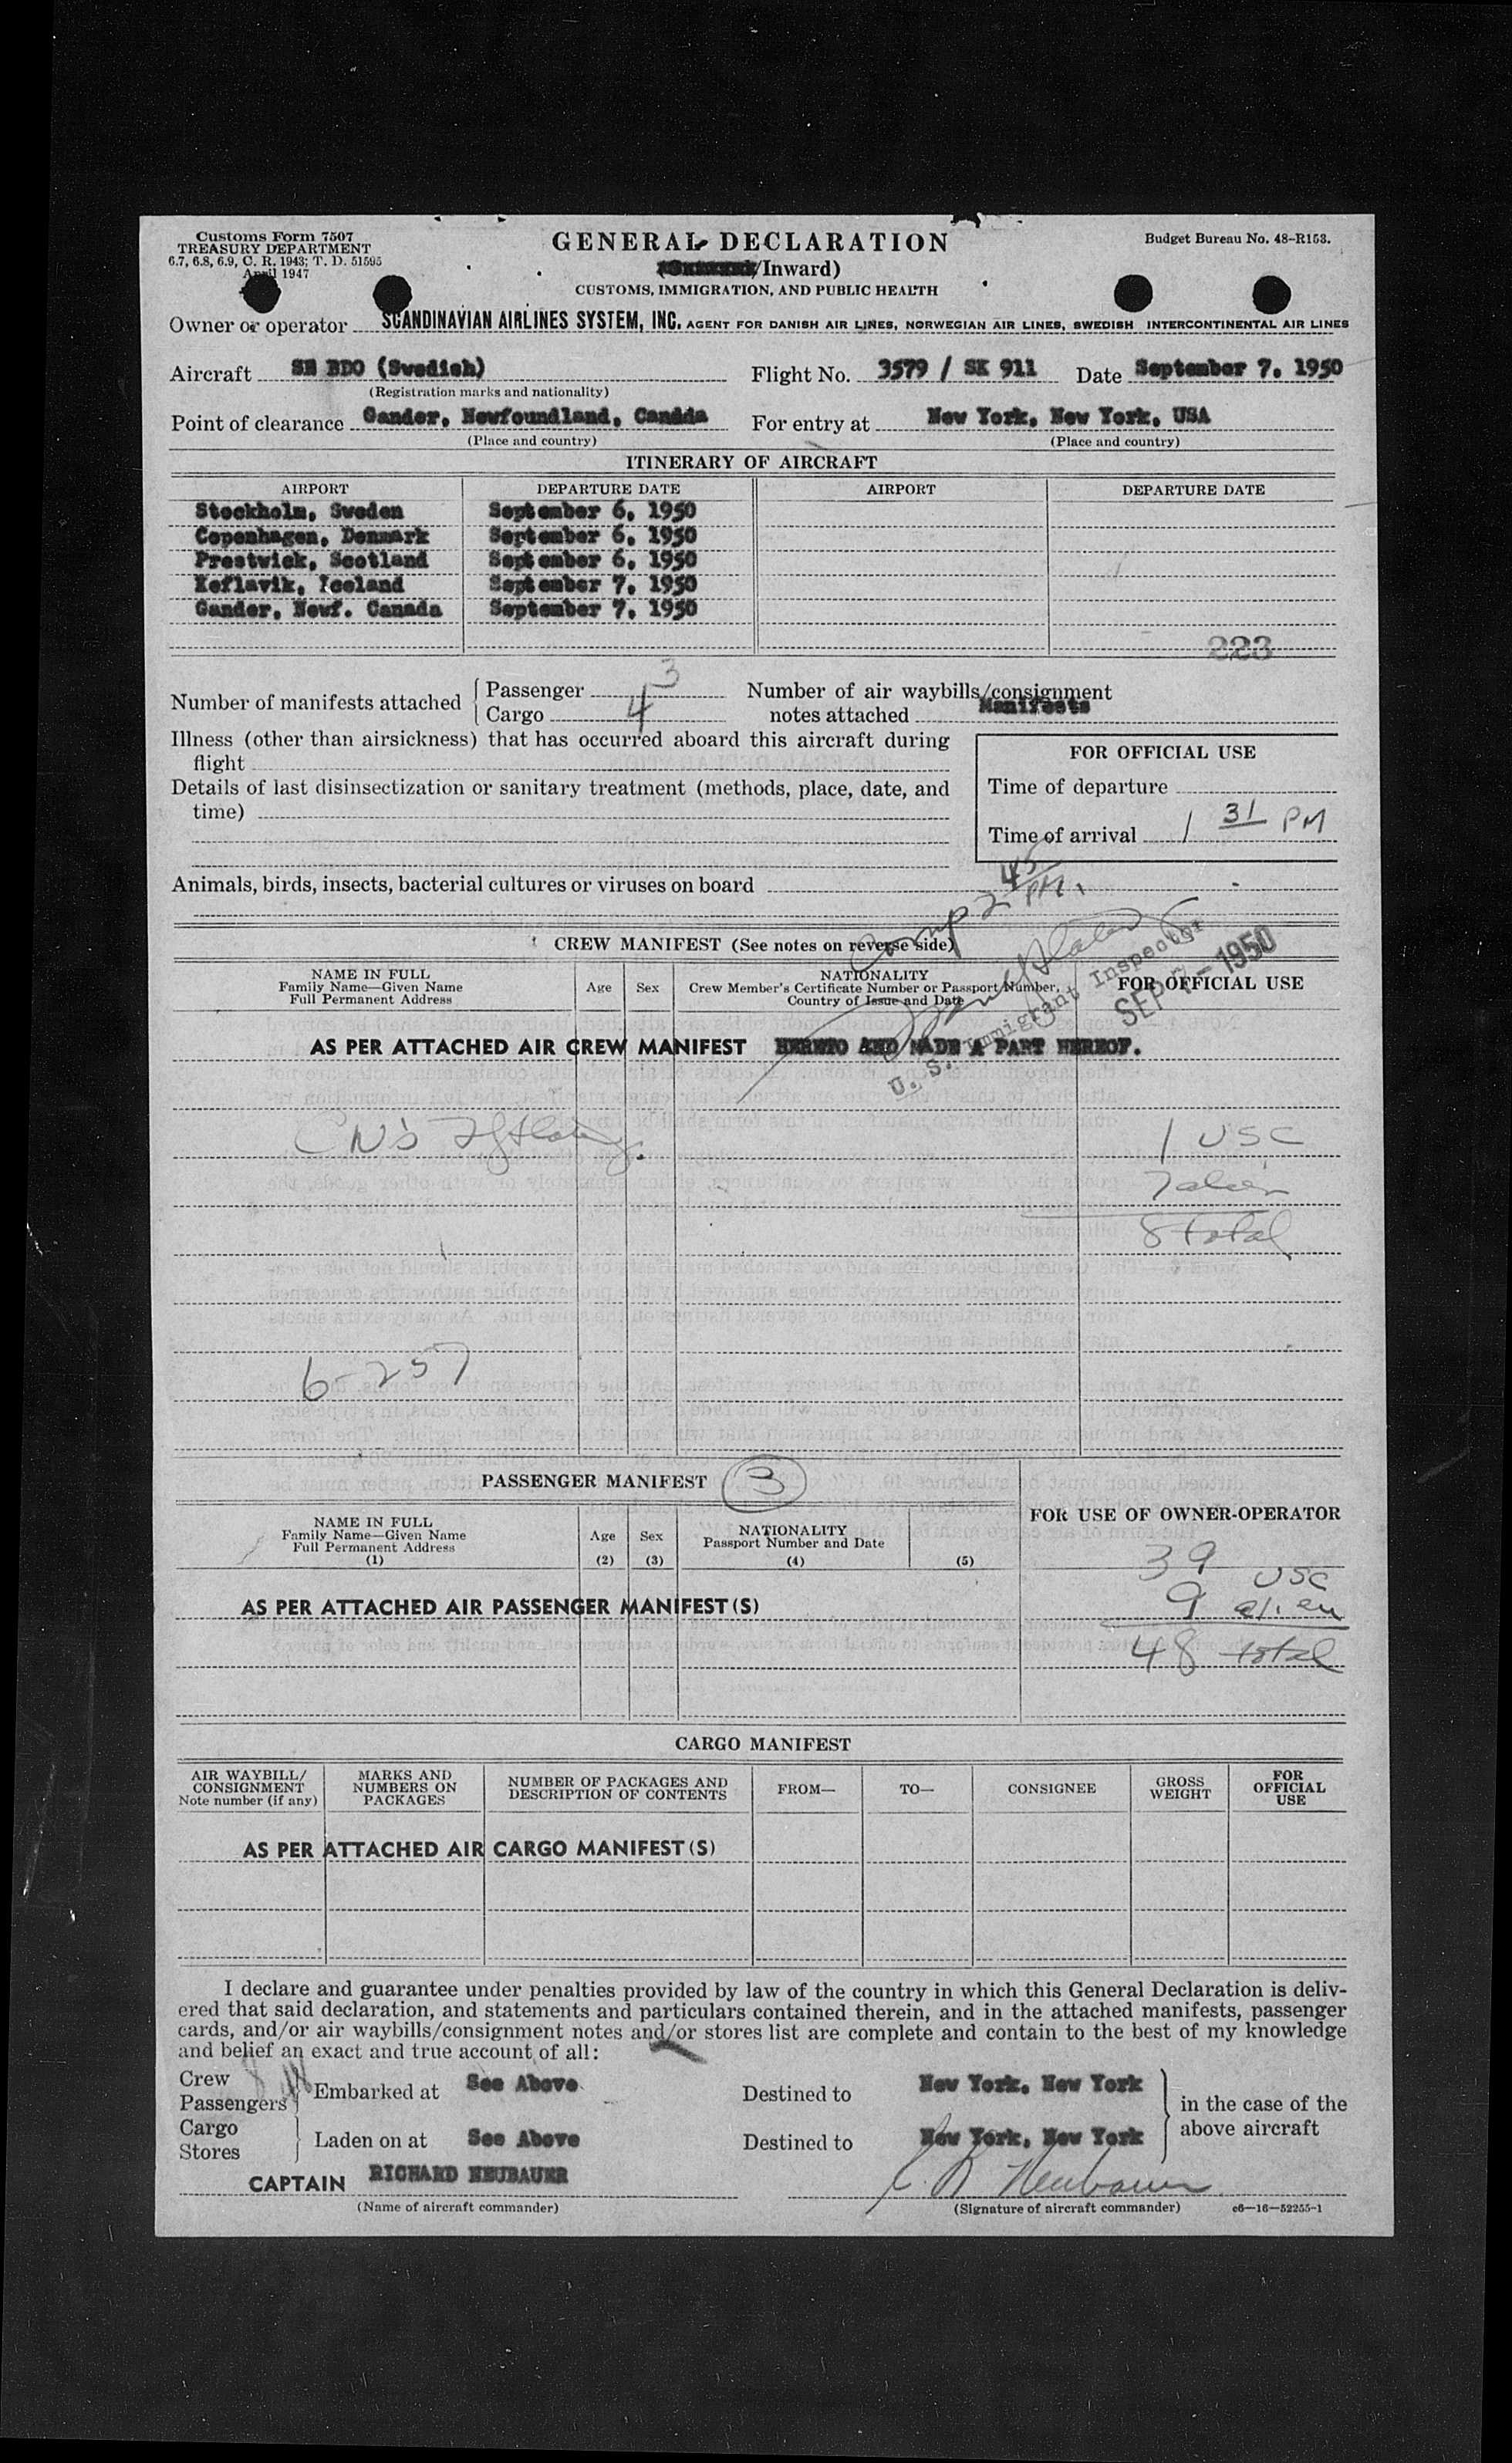 Customs Form 7507
TREASURY DEPARTMENT
6.7, 6.8, 6.9, C. R. 1943; T. D. 51595
April 1947
GENERAL DECLARATION
/Inward)
CUSTOMS, IMMIGRATION, AND PUBLIC HEALTH
Budget Bureau No. 48-R153.
Owner or operator SCANDINAVIAN AIRLINES SYSTEM, INC. AGENT FOR DANISH AIR LINES, NORWEGIAN AIR LINES, SWEDISH INTERCONTINENTAL AIR LINES
Aircraft SE BDO (Swedish) Flight No. 3579 / SK 911 Date September 7, 1950
(Registration marks and nationality)
Point of clearance Gander, Newfoundland, Canada For entry at New York, New York, USA
(Place and country) (Place and country)
ITINERARY OF AIRCRAFT
AIRPORT DEPARTURE DATE AIRPORT DEPARTURE DATE
Stockholm, Sweden September 6, 1950
Copenhagen, Denmark September 6, 1950
Prestwick, Scotland September 6, 1950
Keflavik, Iceland September 7, 1950
Gander, Newf. Canada September 7, 1950
223
Number of manifests attached
Passenger 3
Cargo 4
Number of air waybills/consignment
notes attached Manifests
Illness (other than airsickness) that has occurred aboard this aircraft during
flight
Details of last disinsectization or sanitary treatment (methods, place, date, and
time)
FOR OFFICIAL USE
Time of departure
Time of arrival 1 31 PM
Animals, birds, insects, bacterial cultures or viruses on board
Comp 2 45 PM.
CREW MANIFEST (See notes on reverse side)
NAME IN FULL
Family Name—Given Name
Full Permanent Address
Age Sex
NATIONALITY
Crew Member's Certificate Number or Passport Number,
Country of Issue and Date
FOR OFFICIAL USE
U. S. Immigrant Inspector
SEP 7 - 1950
AS PER ATTACHED AIR CREW MANIFEST HERETO AND MADE A PART HEREOF.
1 USC
7 alien
8 total
6-257
PASSENGER MANIFEST 3
NAME IN FULL
Family Name—Given Name
Full Permanent Address
(1)
Age
(2)
Sex
(3)
NATIONALITY
Passport Number and Date
(4)
(5)
FOR USE OF OWNER-OPERATOR
39 USC
9 alien
48 total
AS PER ATTACHED AIR PASSENGER MANIFEST(S)
CARGO MANIFEST
AIR WAYBILL/
CONSIGNMENT
Note number (if any)
MARKS AND
NUMBERS ON
PACKAGES
NUMBER OF PACKAGES AND
DESCRIPTION OF CONTENTS
FROM—
TO—
CONSIGNEE
GROSS
WEIGHT
FOR
OFFICIAL
USE
AS PER ATTACHED AIR CARGO MANIFEST(S)
I declare and guarantee under penalties provided by law of the country in which this General Declaration is deliv-
ered that said declaration, and statements and particulars contained therein, and in the attached manifests, passenger
cards, and/or air waybills/consignment notes and/or stores list are complete and contain to the best of my knowledge
and belief an exact and true account of all:
Crew
Passengers
Embarked at See Above Destined to New York, New York
Cargo
Stores
Laden on at See Above Destined to New York, New York
in the case of the
above aircraft
CAPTAIN RICHARD NEUBAUER
(Name of aircraft commander)
R Neubauer
(Signature of aircraft commander)
c6—16—52255-1